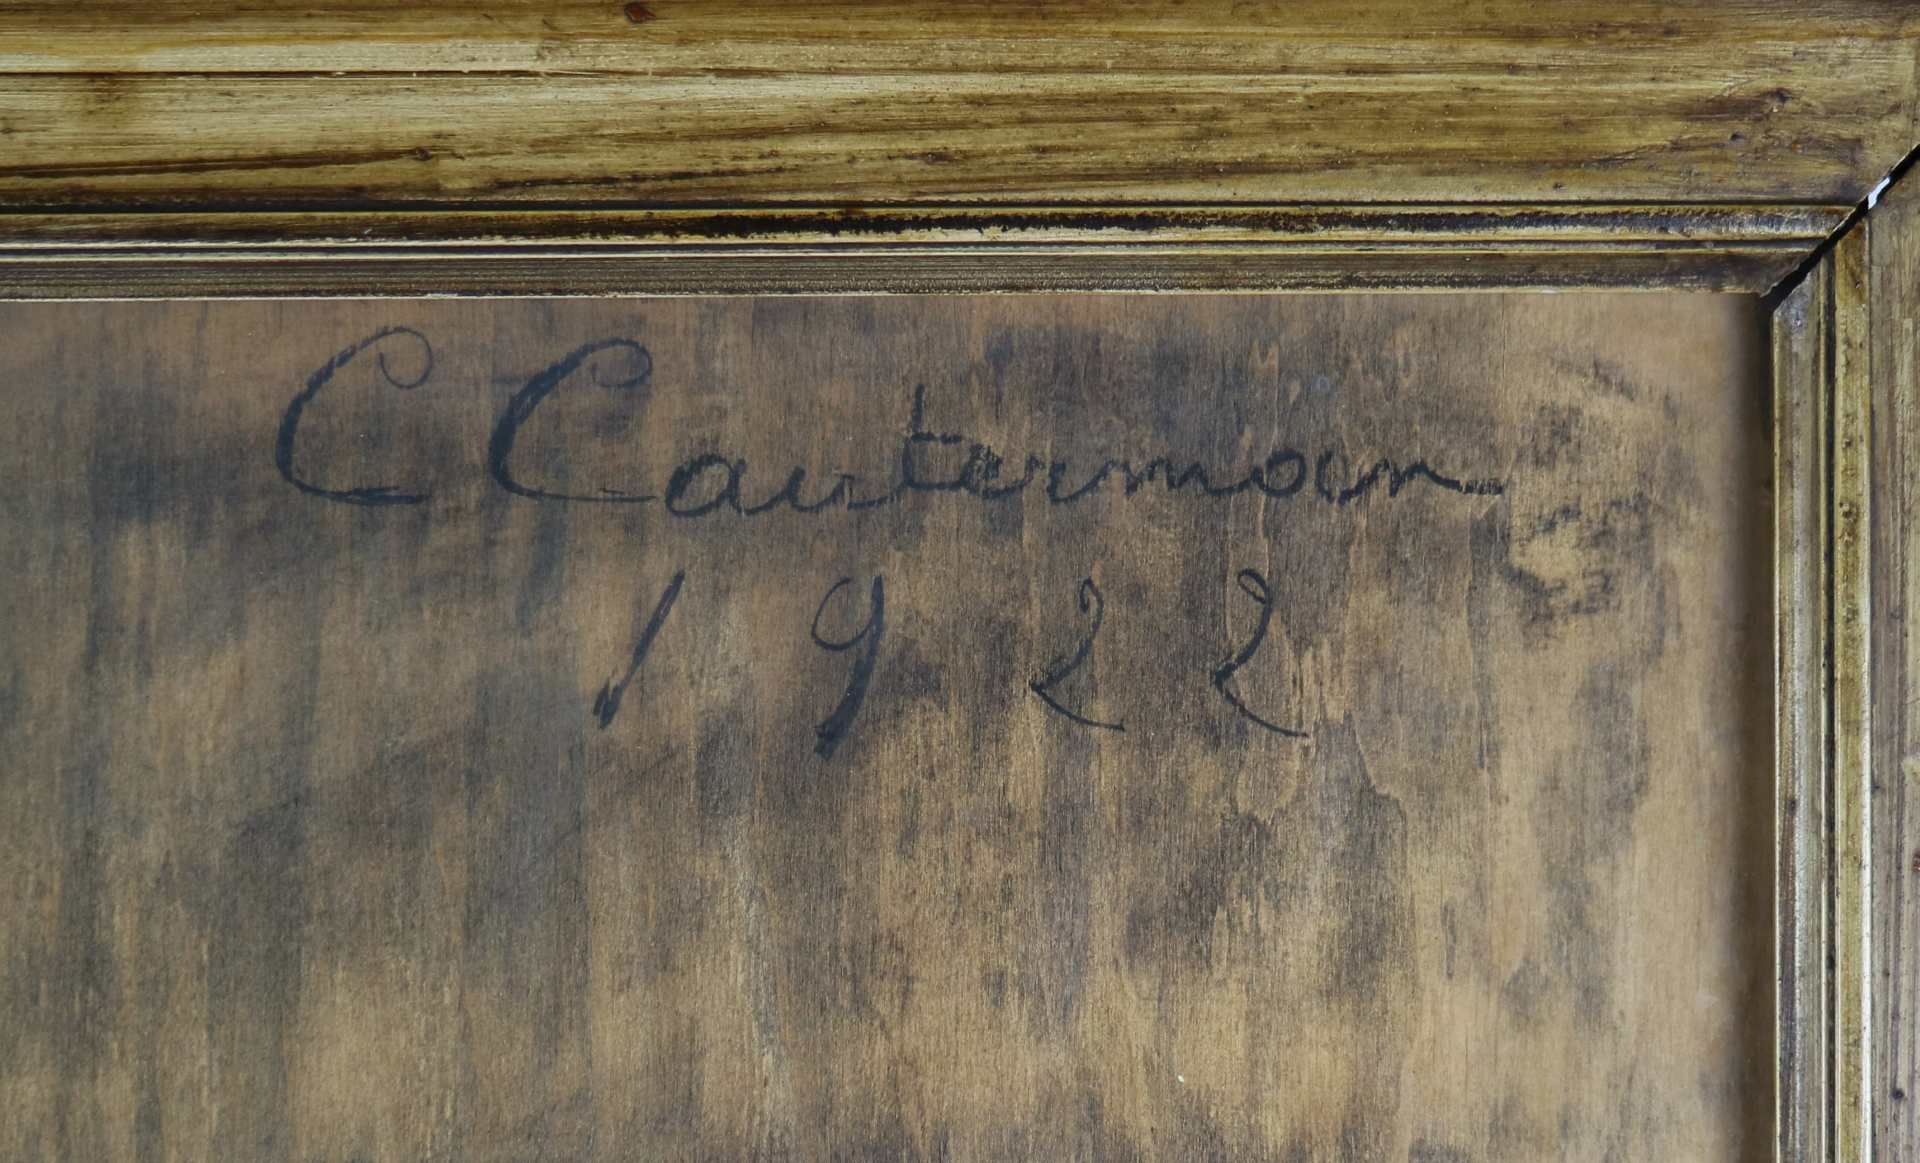 C Cauterman
1922